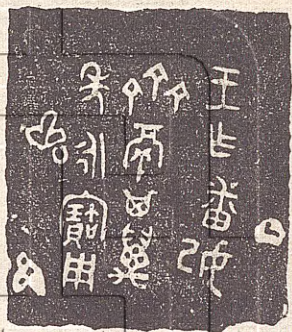 王乍番妃
齊鬲其萬
年永寶用